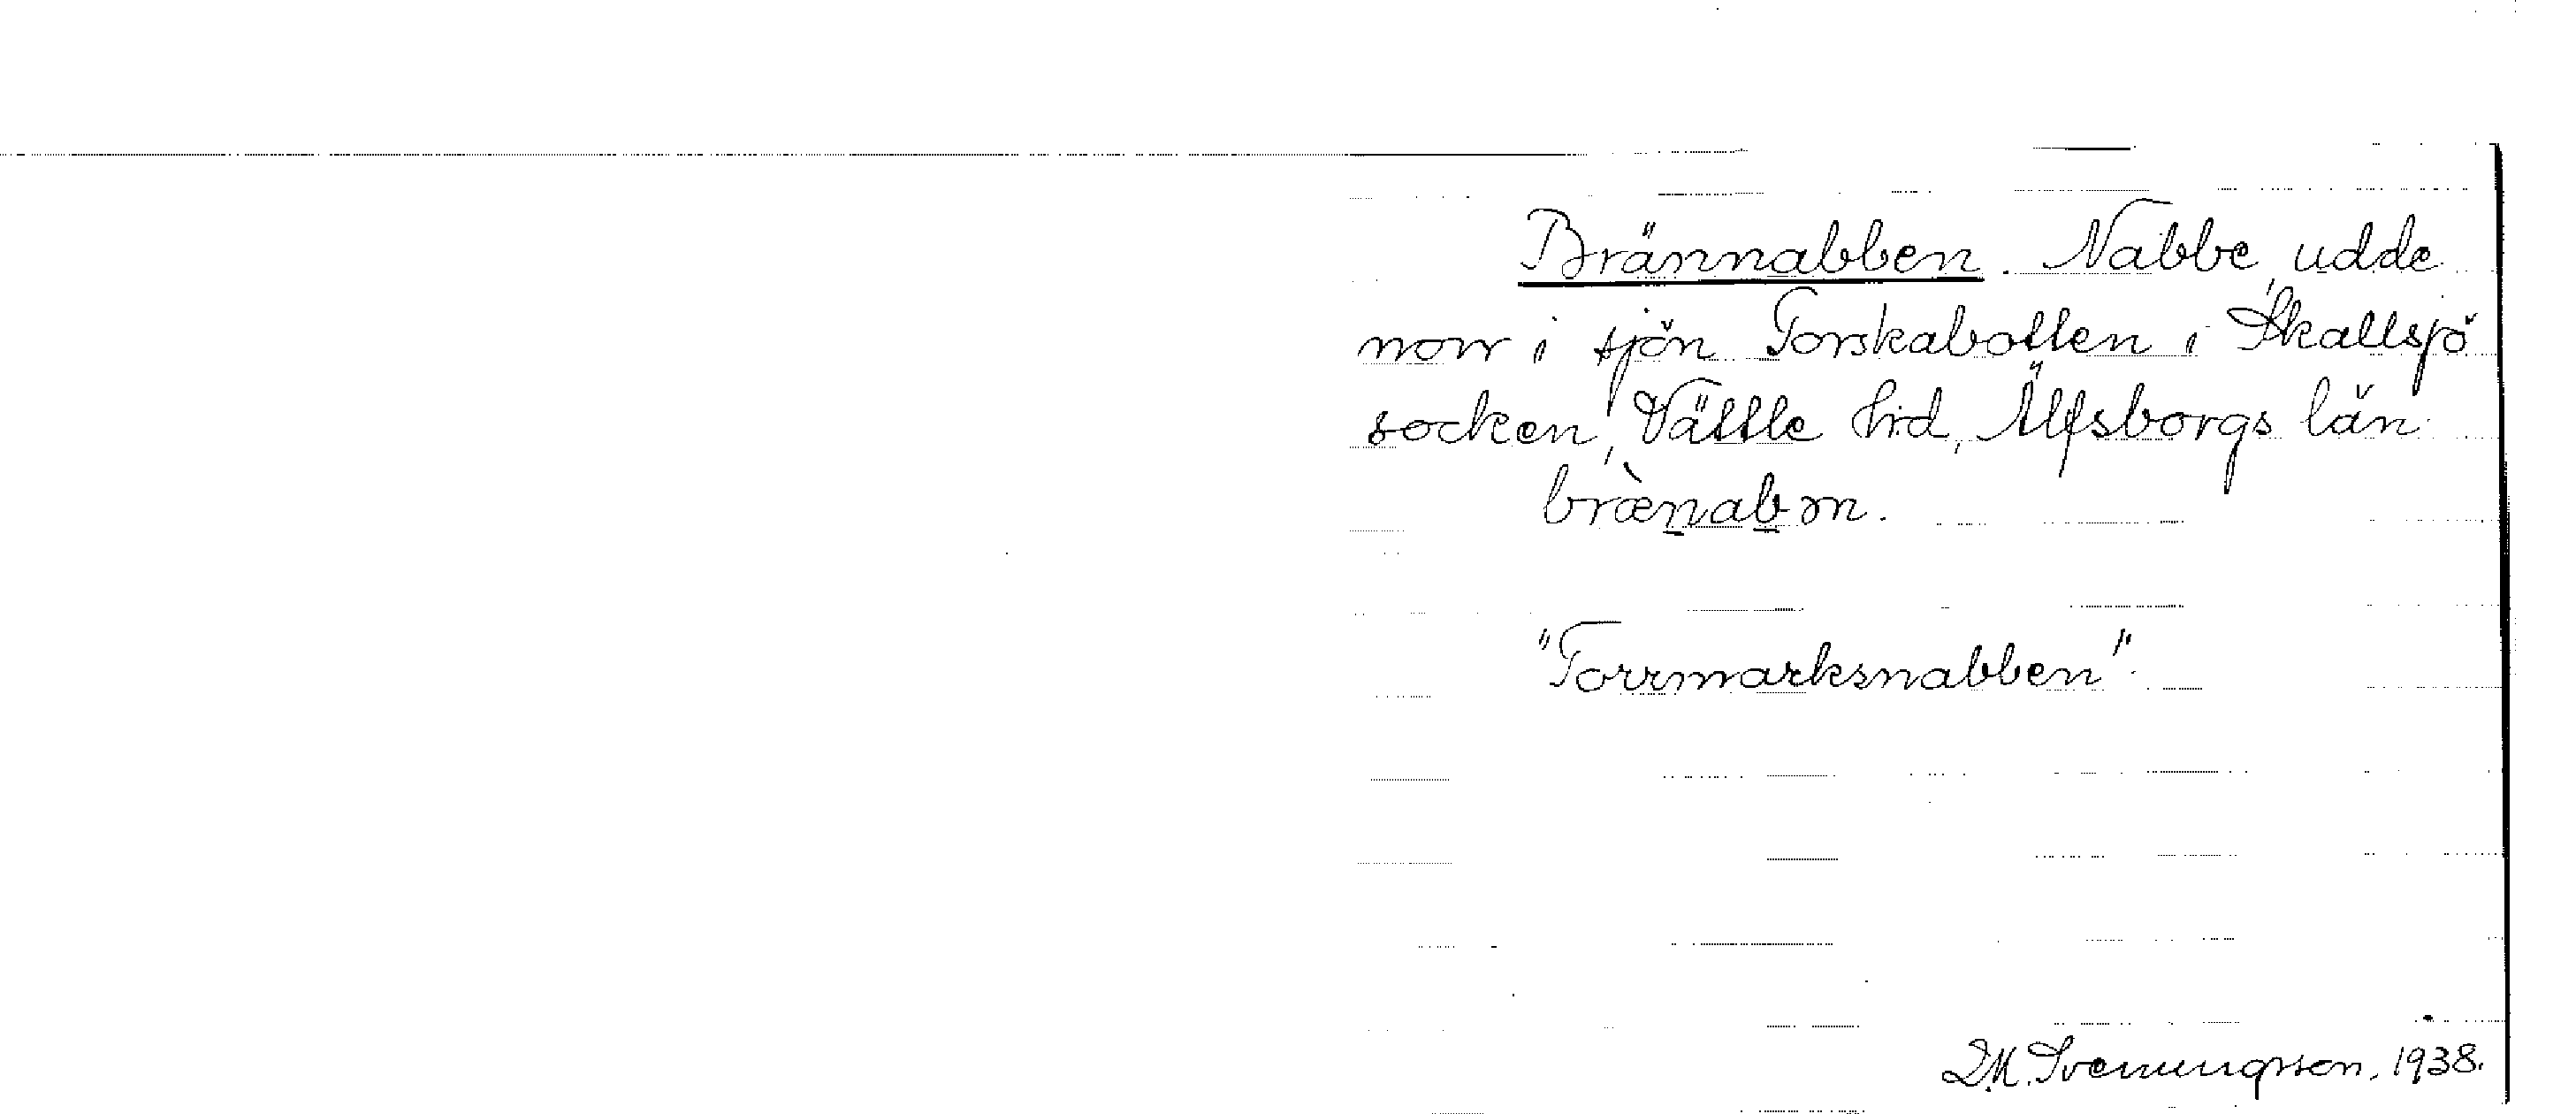 Brännabben. Nabbe, udde
norr i sjön Torskabotten i Skallsjö
socken, Vättle hd, Älfsborgs län.
brænabm.
"Torrmarksnabben".
D.M. Svenungsson, 1938.